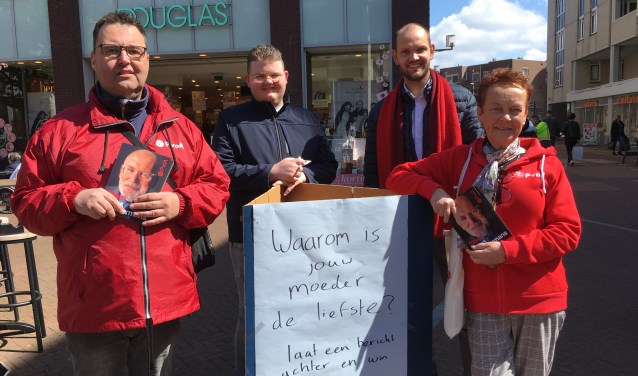 DOUGLAS
PvdA
PvdA
Waarom is
jouw
moeder
de liefste?
laat een bericht
achter en win